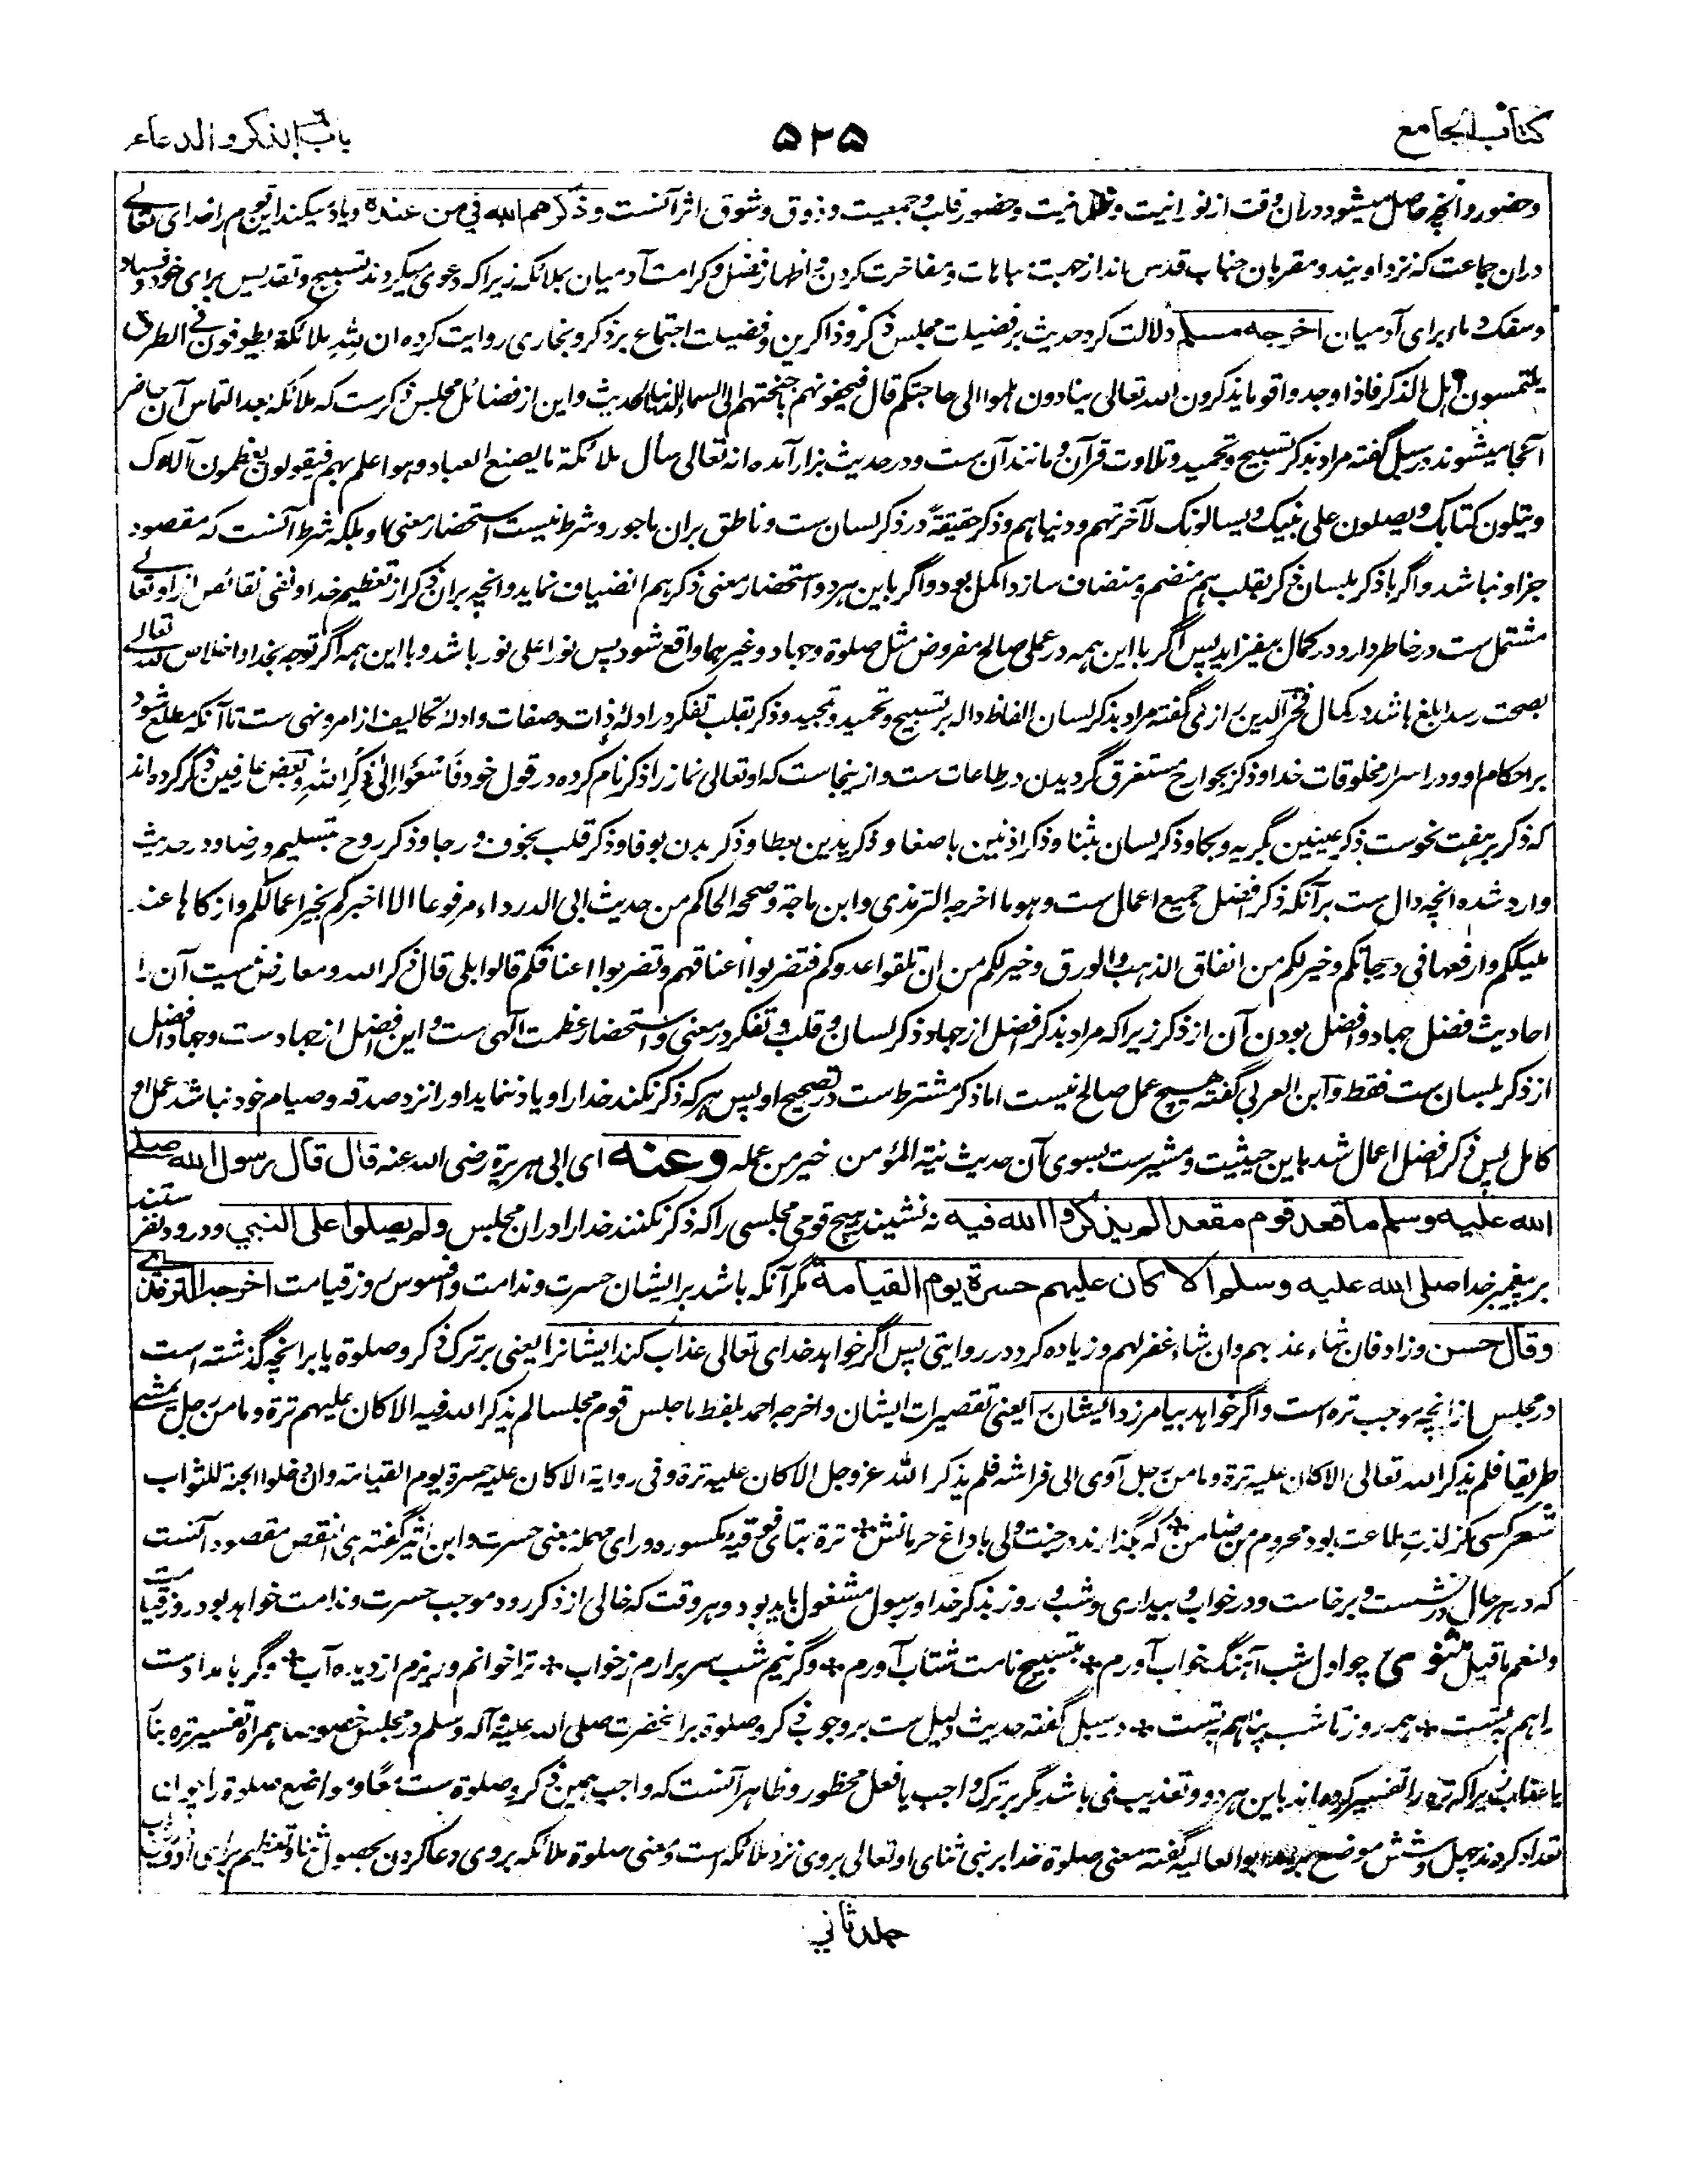 کتاب الجامع ۵۲۵ باب الذکر والدعاء
وحضور وانچه حاصل میشود دران وقت از نورانیت و نیت وحضور قلب وجمعیت وذوق وشوق اثر آنست وذکرهم الله في من عنده ویاد میکند این قوم را خدای تعالے
دران جماعت که نزد اویند ومقربان جناب قدس اند از جهت مباهات ومفاخرت کردن و اظهار فضل وکرامت آدمیان بملائکه زیراکه دعوی میکردند تسبیح وتقدیس برای خود وفساد
وسفک دماء برای آدمیان اخرجه مسلم دلالت کرد حدیث بر فضیلت مجلس ذکر وذاکرین وفضیلت اجتماع بر ذکر وبخاری روایت کرده ان لله ملائکة یطوفون فے الطرق
یلتمسون اهل الذکر فاذا وجدوا قوما یذکرون الله تعالی ینادون هلموا الی حاجتکم قال فیحفونهم باجنحتهم الی السماء الدنیا الحدیث واین از فضائل مجلس ذکرست که ملائکه بعد التماس آن حاضر
آنجا میشوند در سبل گفته مراد بذکر تسبیح وتحمید وتلاوت قرآن ومانند آن ست ودر حدیث بزار آمده انه تعالی یسأل ملائکته ما یصنع العباد وهو اعلم بهم فیقولون یعظمون آلاءک
ویتلون کتابک ویصلون علی نبیک ویسالونک لآخرتهم ودنیاهم وذکر حقیقة در ذکر لسان ست وناطق بران ماجور وشرط نیست استحضار معنی او بلکه شرط آنست که مقصود
جز او نباشد واگر با ذکر بلسان ذکر بقلب هم منضم ومنضاف سازد اکمل بود واگر باین هر دو استحضار معنی ذکر هم انضیاف نماید وانچه بران ذکر از تعظیم خدا ونفی نقائص از او تعالے
مشتمل ست در خاطر دارد در کمال بیفزاید پس اگر با این همه در عملی صالح مفروض مثل صلوة وجهاد وغیرهما واقع شود پس نورا علی نور باشد وبا این همه اگر توجه بخدا واخلاص لله تعالے
بصحت رسد ابلغ باشد در کمال فخر الدین رازی گفته مراد بذکر لسان الفاظ داله بر تسبیح وتحمید وتمجید وذکر بقلب تفکر در ادلۀ ذات وصفات وادلۀ تکالیف از امر ونهی ست تا آنکه مطلع شود
بر احکام او ودر اسرار مخلوقات خدا وذکر بجوارح مستغرق گردیدن در طاعات ست واز ینجاست که او تعالی نماز را ذکر نام کرده در قول خود فَاسْعَوْا اِلٰی ذِکْرِ اللهِ وبعض عارفین ذکر کرده اند
که ذکر بر هفت نحوست ذکر عینین بگریه وبکا وذکر لسان بثنا وذکر اذنین باصغا وذکر یدین بعطا وذکر بدن بوفا وذکر قلب بخوف ورجا وذکر روح بتسلیم ورضا ودر حدیث
وارد شده انچه دال ست بر آنکه ذکر افضل جمیع اعمال ست وهو ما اخرجه الترمذی وابن ماجة وصححه الحاکم من حدیث ابی الدرداء مرفوعا الا اخبرکم بخیر اعمالکم وازکاها عند
ملیککم وارفعها فی درجاتکم وخیر لکم من انفاق الذهب والورق وخیر لکم من ان تلقوا عدوکم فتضربوا اعناقهم وتضربوا اعناقکم قالوا بلی قال ذکر الله ومعارض نیست آن را
احادیث فضل جهاد وافضل بودن آن از ذکر زیراکه مراد بذکر افضل از جهاد ذکر لسان وقلب وتفکر در معنی واستحضار عظمت الهی ست واین افضل از جهادست وجهاد افضل
از ذکر بلسان ست فقط وابن العربي گفته هیچ عمل صالح نیست اما ذکر مشترط ست در تصحیح او پس هر که ذکر نکند خدا را ویاد ننماید او را نزد صدقه وصیام خود نباشد عمل او
کامل پس ذکر افضل اعمال شد باین حیثیت ومشیرست بسوی آن حدیث نیة المؤمن خیر من عمله وعنه ای ابی هریرة رضی الله عنه قال قال رسول الله صلے
الله علیه وسلم ما قعد قوم مقعدا لم یذکروا الله فیه نه نشینند هیچ قومی مجلسی را که ذکر نکنند خدا را دران مجلس ولم یصلوا علی النبي ودرود نفرستند
بر پیغمبر خدا صلی الله علیه وسلم الا کان علیهم حسرة یوم القیامة مگر آنکه باشد بر ایشان حسرت وندامت وافسوس روز قیامت اخرجه الترمذے
وقال حسن وزاد فان شاء عذبهم وان شاء غفر لهم وزیاده کرد در روایتی پس اگر خواهد خدای تعالی عذاب کند ایشانرا یعنی بر ترک ذکر وصلوة یا بر انچه گذشته است
در مجلس از انچه موجب تره است واگر خواهد بیامرزد ایشان را یعنی تقصیرات ایشان واخرجه احمد بلفظ ما جلس قوم مجلسا لم یذکر الله فیه الا کان علیهم ترة وما من رجل یمشی
طریقا فلم یذکر الله تعالی الا کان علیه ترة وما من رجل آوی الی فراشه فلم یذکر الله عز وجل الا کان علیه ترة وفی روایة الا کان علیه حسرة یوم القیامة وان دخلوا الجنة للثواب
شعر کسی کز لذت طاعت بود محروم من ضامن * که بگذارند در جنت ولی با داغ حرمانش * ترة بتای فوقیه مکسوره ورای مهمله بمعنی حسرت وابن اثیر گفته هی النقص مقصود آنست
که در هر حال در نشست وبرخاست ودر خواب وبیداری وشب وروز بذکر خدا ورسول مشغول باید بود وهر وقت که خالی از ذکر رود موجب حسرت وندامت خواهد بود روز قیامت
ولنعم ما قیل مثنوی چو اول شب آهنگ خواب آورم * بتسبیح نامت شتاب آورم * وگر نیم شب سر برارم ز خواب * ترا خوانم وریزم از دیده آب * وگر بامدادست
راهم بتست * همه روز تا شب پناهم بتست * در سبل گفته حدیث دلیل ست بر وجوب ذکر وصلوة بر آنحضرت صلی الله علیه وآله وسلم در مجلس خصوصا همراه تفسیر تره بنار
یا عذاب زیراکه تره را تفسیر کرده اند باین هر دو وتعذیب نمی باشد مگر بر ترک واجب یا فعل محظور وظاهر آنست که واجب همین ذکر وصلوة ست معًا ومواضع صلوة را
تعداد کردند چهل وشش موضع ابو العالیه گفته معنی صلوة خدا بر نبی ثنای او تعالی بروی نزد ملائکه است ومعنی صلوة ملائکه بروی دعا کردن بحصول ثنا وتعظیم برای او
جلد ثاني